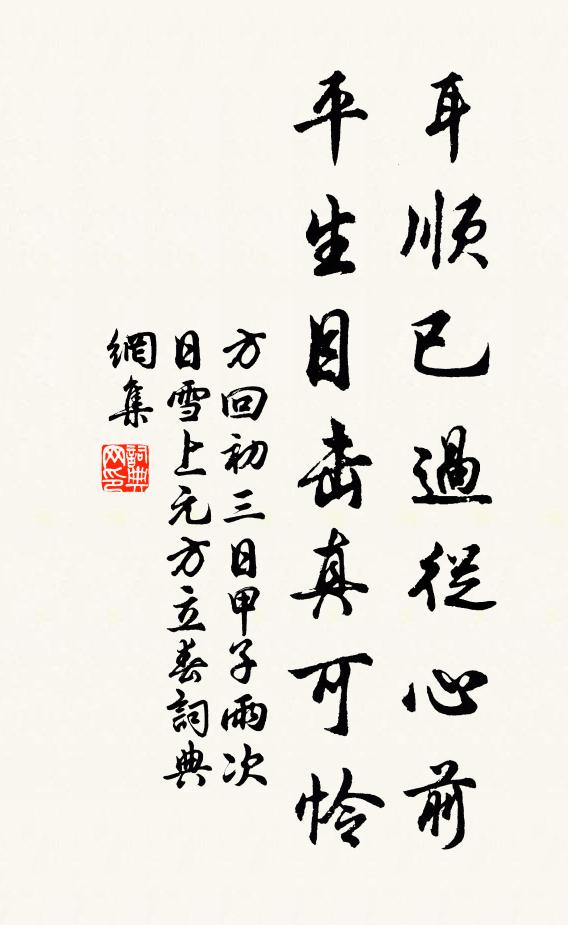 耳順已過從心前
平生目击真可怜
方回初三日甲子雨次
日雪上元方立春詞典
網集
詞典网印